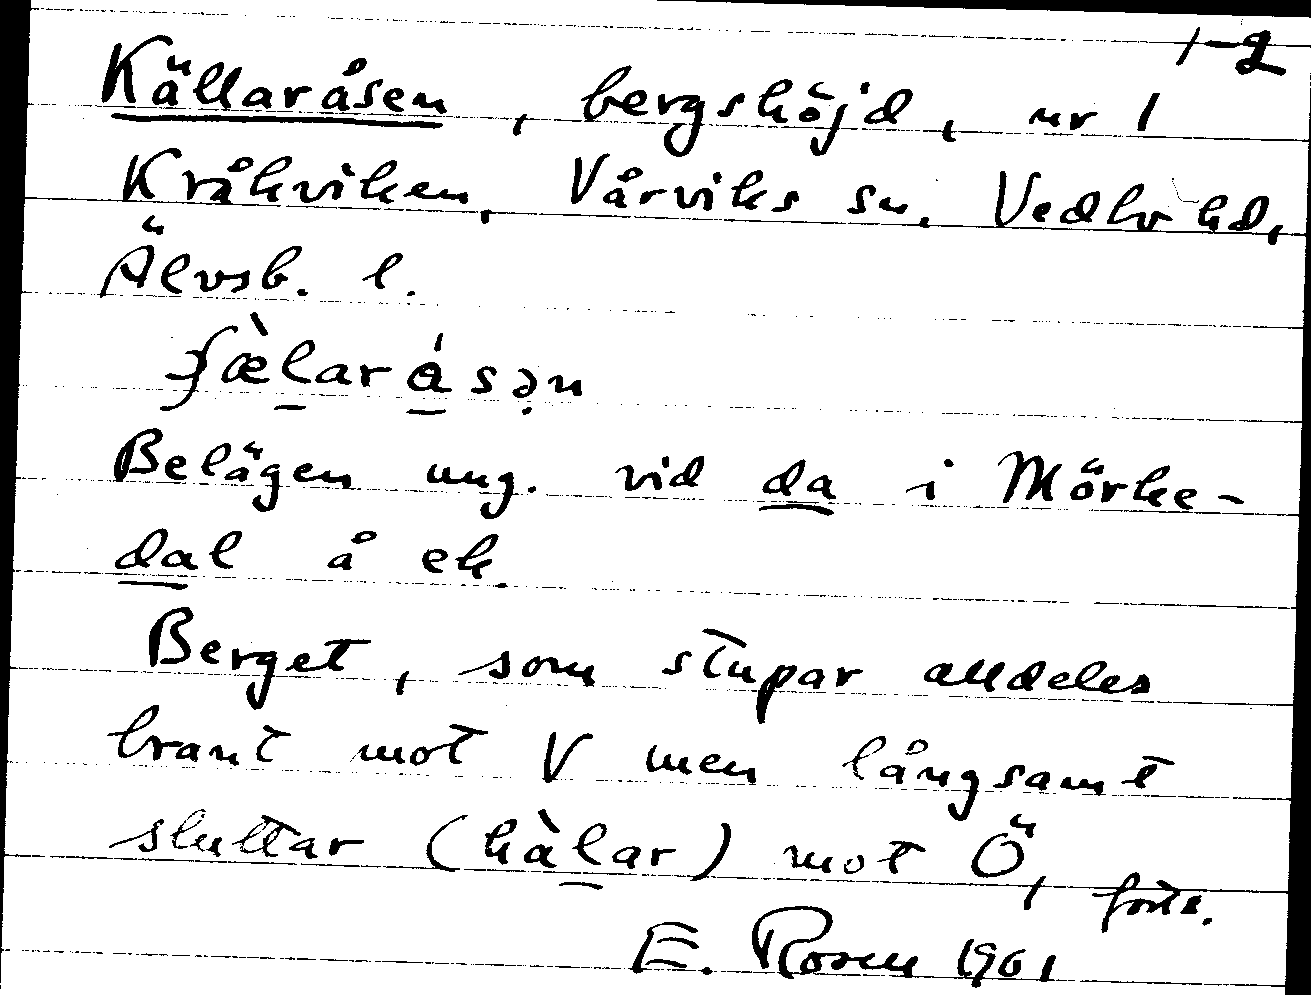 1-2
Källaråsen, bergshöjd, nr 1
Kråkviken, Vårviks sn. Vedbo hd,
Älvsb. l.
Belägen ung. vid da i Mörke-
dal å ek.
Berget, som stupar alldeles
brant mot V men långsamt
sluttar (hàlar) mot Ö,
forts.
E. Rosén 1961